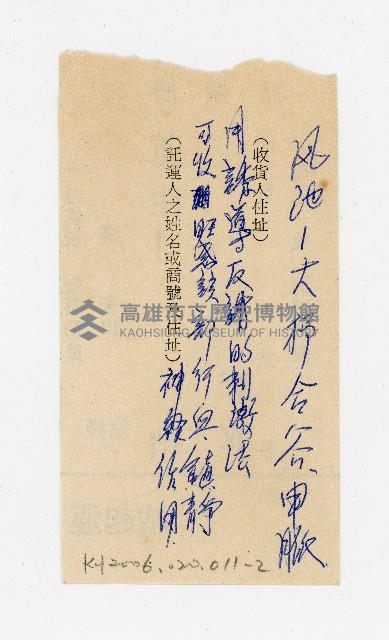 风池、大抒合谷、申脈
(收貨人住址)
用誘導反射的刺激法
可收旺盛該部行与鎮靜
(託運人之姓名或商號及住址)
神経作用
高雄市立歷史博物館
KAOHSIUNG MUSEUM OF HISTORY
KH2006.020.011-2